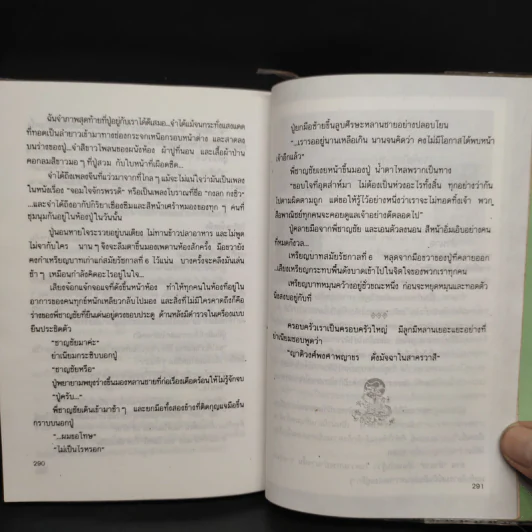 ฉันจำภาพสุดท้ายที่ปู่อยู่กับเราได้ดีเสมอ...จำได้แม้จนกระทั่งแสงแดด
ที่ทอดเป็นลำยาวเข้ามาทางช่องกระจกเหนือกรอบหน้าต่าง และสาดลง
บนร่างของปู่...จำสีขาวโพลนของผนังห้อง ผ้าปูที่นอน และเสื้อผ้าป่าน
คอกลมสีขาวมอ ๆ ที่ปู่สวม กับใบหน้าที่เผือดซีด...
จำได้ถึงเพลงจีนที่แว่วมาจากที่ไกล ๆ แม้จะไม่แน่ใจว่ามันเป็นเพลง
ในหนังเรื่อง "จอมใจจักรพรรดิ" หรือเป็นเพลงโบราณที่ชื่อ "กงฉก กงชิว"
...และจำได้ถึงอากัปกิริยาเซื่องซึมและสีหน้าเศร้าหมองของทุก ๆ คนที่
ชุมนุมกันอยู่ในห้องปู่ในวันนั้น
ปู่นอนหายใจระรวยอยู่บนเตียง ไม่ทานข้าวปลาอาหาร และไม่พูด
ไม่จากับใคร นาน ๆ จึงจะลืมตาขึ้นมองเพดานห้องสักครั้ง มือขวายัง
คงกำเหรียญบาทเก่าแก่สมัยรัชกาลที่ ๖ ไว้แน่น บางครั้งจะคลึงมันเล่น
ช้า ๆ เหมือนกำลังคิดอะไรอยู่ในใจ...
เสียงจอกแจ้กจอแจที่ดังขึ้นหน้าห้อง ทำให้ทุกคนในห้องที่อยู่ใน
อาการของคนทุกข์หนักเหลียวกลับไปมอง และสิ่งที่ไม่มีใครคาดถึงก็คือ
ร่างของพี่ชาญชัยที่ยืนเด่นอยู่ตรงขอบประตู ด้านหลังมีตำรวจในเครื่องแบบ
ยืนประชิดตัว
"ชาญชัยมาค่ะ"
ย่าเนียมกระซิบบอกปู่
"ชาญชัยหรือ"
ปู่พยายามพยุงร่างขึ้นมองหลานชายที่ก่อเรื่องเดือดร้อนให้ไม่รู้จักจบ
"ปู่ครับ..."
พี่ชาญชัยเดินเข้ามาช้า ๆ และยกมือทั้งสองข้างที่ติดกุญแจมือขึ้น
กราบบนอกปู่
"...ผมขอโทษ"
"ไม่เป็นไรหรอก"
290
ปู่ยกมือซ้ายขึ้นลูบศีรษะหลานชายอย่างปลอบโยน
"...เรารออยู่นานเหลือเกิน นานจนคิดว่า คงไม่มีโอกาสได้พบหน้า
เจ้าอีกแล้ว"
พี่ชาญชัยเงยหน้าขึ้นมองปู่ น้ำตาไหลพรากเป็นทาง
"ขอบใจที่อุตส่าห์มา ไม่ต้องเป็นห่วงอะไรทั้งสิ้น ทุกอย่างว่ากัน
ไปตามผิดตามถูก แต่ขอให้รู้ไว้อย่างหนึ่งว่าเราจะไม่ทอดทิ้งเจ้า พวก
สือพาณิชย์ทุกคนจะคอยดูแลเจ้าอย่างดีตลอดไป"
ปู่คลายมือจากพี่ชาญชัย และเอนตัวลงนอน สีหน้าอิ่มเอิบอย่างคน
ที่หมดกังวล...
เหรียญบาทสมัยรัชกาลที่ ๖ หลุดจากมือขวาของปู่ที่คลายออก
...เสียงเหรียญกระทบพื้นดังบาดเข้าไปในจิตใจของพวกเราทุกคน
เหรียญบาทหมุนคว้างอยู่ชั่วขณะหนึ่ง ก่อนจะหยุดหมุนและทอดตัว
นิ่งสงบอยู่กับที่
ครอบครัวเราเป็นครอบครัวใหญ่ มีลูกมีหลานเยอะแยะอย่างที่
ย่าเนียมชอบพูดว่า
"ญาติวงศ์พงศาคาพญาธร ดังมัจฉาในสาครวาสี"
291